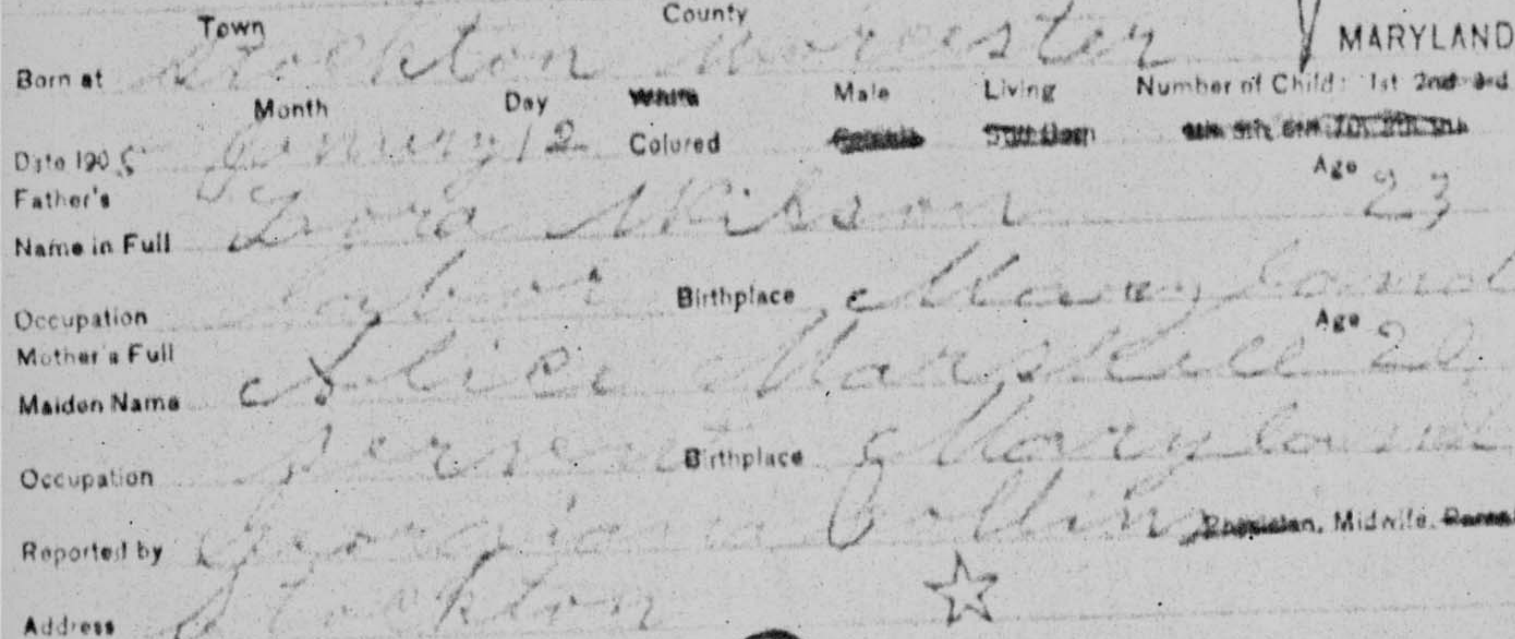 Town County
Born at Stockton Worcester MARYLAND
Month Day White Male Living Number of Child: 1st 2nd 3rd
Date 1905 Janury 12 Colored Female Still Born 4th 5th 6th 7th 8th 9th
Father's Age 23
Name in Full Zora Wilson
Occupation labor Birthplace Maryland
Mother's Full Age 20
Maiden Name Alice Marshall
Occupation servent Birthplace Maryland
Reported by Georgiana Collins Physician, Midwife, Parent
Address Stockton